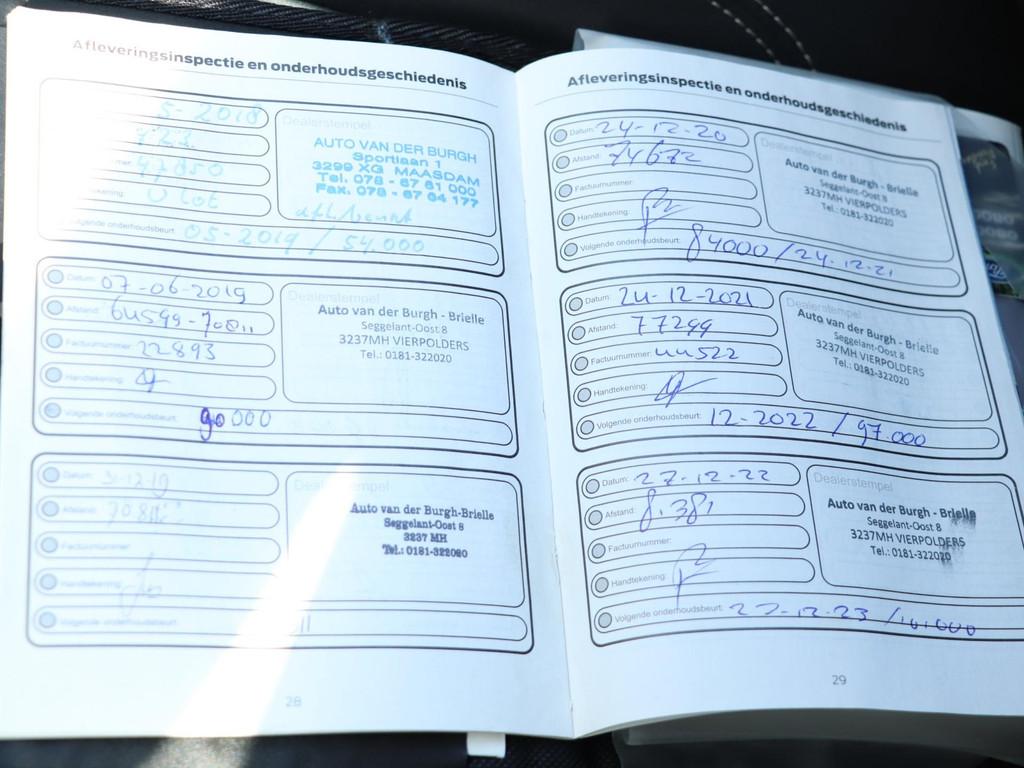 Afleveringsinspectie en onderhoudsgeschiedenis
5-2018
Dealerstempel
AUTO VAN DER BURGH
Sportlaan 1
3299 XG MAASDAM
Tel. 078 - 67 61 000
Fax. 078 - 67 64 177
Volgende onderhoudsbeurt: 05-2019 / 54.000
Datum: 07-06-2019
Afstand:
Factuurnummer: 22893
Handtekening:
Volgende onderhoudsbeurt: 90000
Dealerstempel
Auto van der Burgh - Brielle
Seggelant-Oost 8
3237MH VIERPOLDERS
Tel.: 0181-322020
Datum: 31-12-19
Afstand:
Factuurnummer:
Handtekening:
Volgende onderhoudsbeurt:
Dealerstempel
Auto van der Burgh-Brielle
Seggelant-Oost 8
3237 MH
Tel.: 0181-322020
28
Afleveringsinspectie en onderhoudsgeschiedenis
Datum: 24-12-20
Afstand: 74672
Factuurnummer:
Handtekening:
Volgende onderhoudsbeurt: 84000/24-12-21
Dealerstempel
Auto van der Burgh - Brielle
Seggelant-Oost 8
3237MH VIERPOLDERS
Tel.: 0181-322020
Datum: 24-12-2021
Afstand: 77299
Factuurnummer: 44522
Handtekening:
Volgende onderhoudsbeurt: 12-2022 / 97.000
Dealerstempel
Auto van der Burgh - Brielle
Seggelant-Oost 8
3237MH VIERPOLDERS
Tel.: 0181-322020
Datum: 27-12-22
Afstand: 8.381
Factuurnummer:
Handtekening:
Volgende onderhoudsbeurt: 27-12-23 / 101000
Dealerstempel
Auto van der Burgh - Brielle
Seggelant-Oost 8
3237MH VIERPOLDERS
Tel.: 0181-322020
29